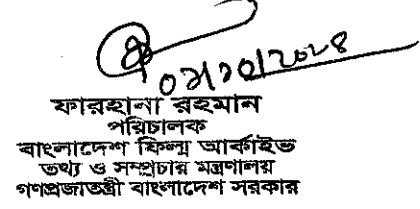 ০১/১০/২০২৪
ফারহানা রহমান
পরিচালক
বাংলাদেশ ফিল্ম আর্কাইভ
তথ্য ও সম্প্রচার মন্ত্রণালয়
গণপ্রজাতন্ত্রী বাংলাদেশ সরকার